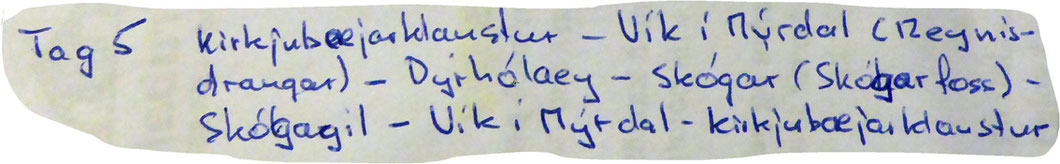 Tag 5 Kirkjubæjarklaustur – Vík í Mýrdal (Reynis-
drangar) – Dyrhólaey – Skógar (Skógarfoss) –
Skógagil – Vík í Mýrdal - Kirkjubæjarklaustur